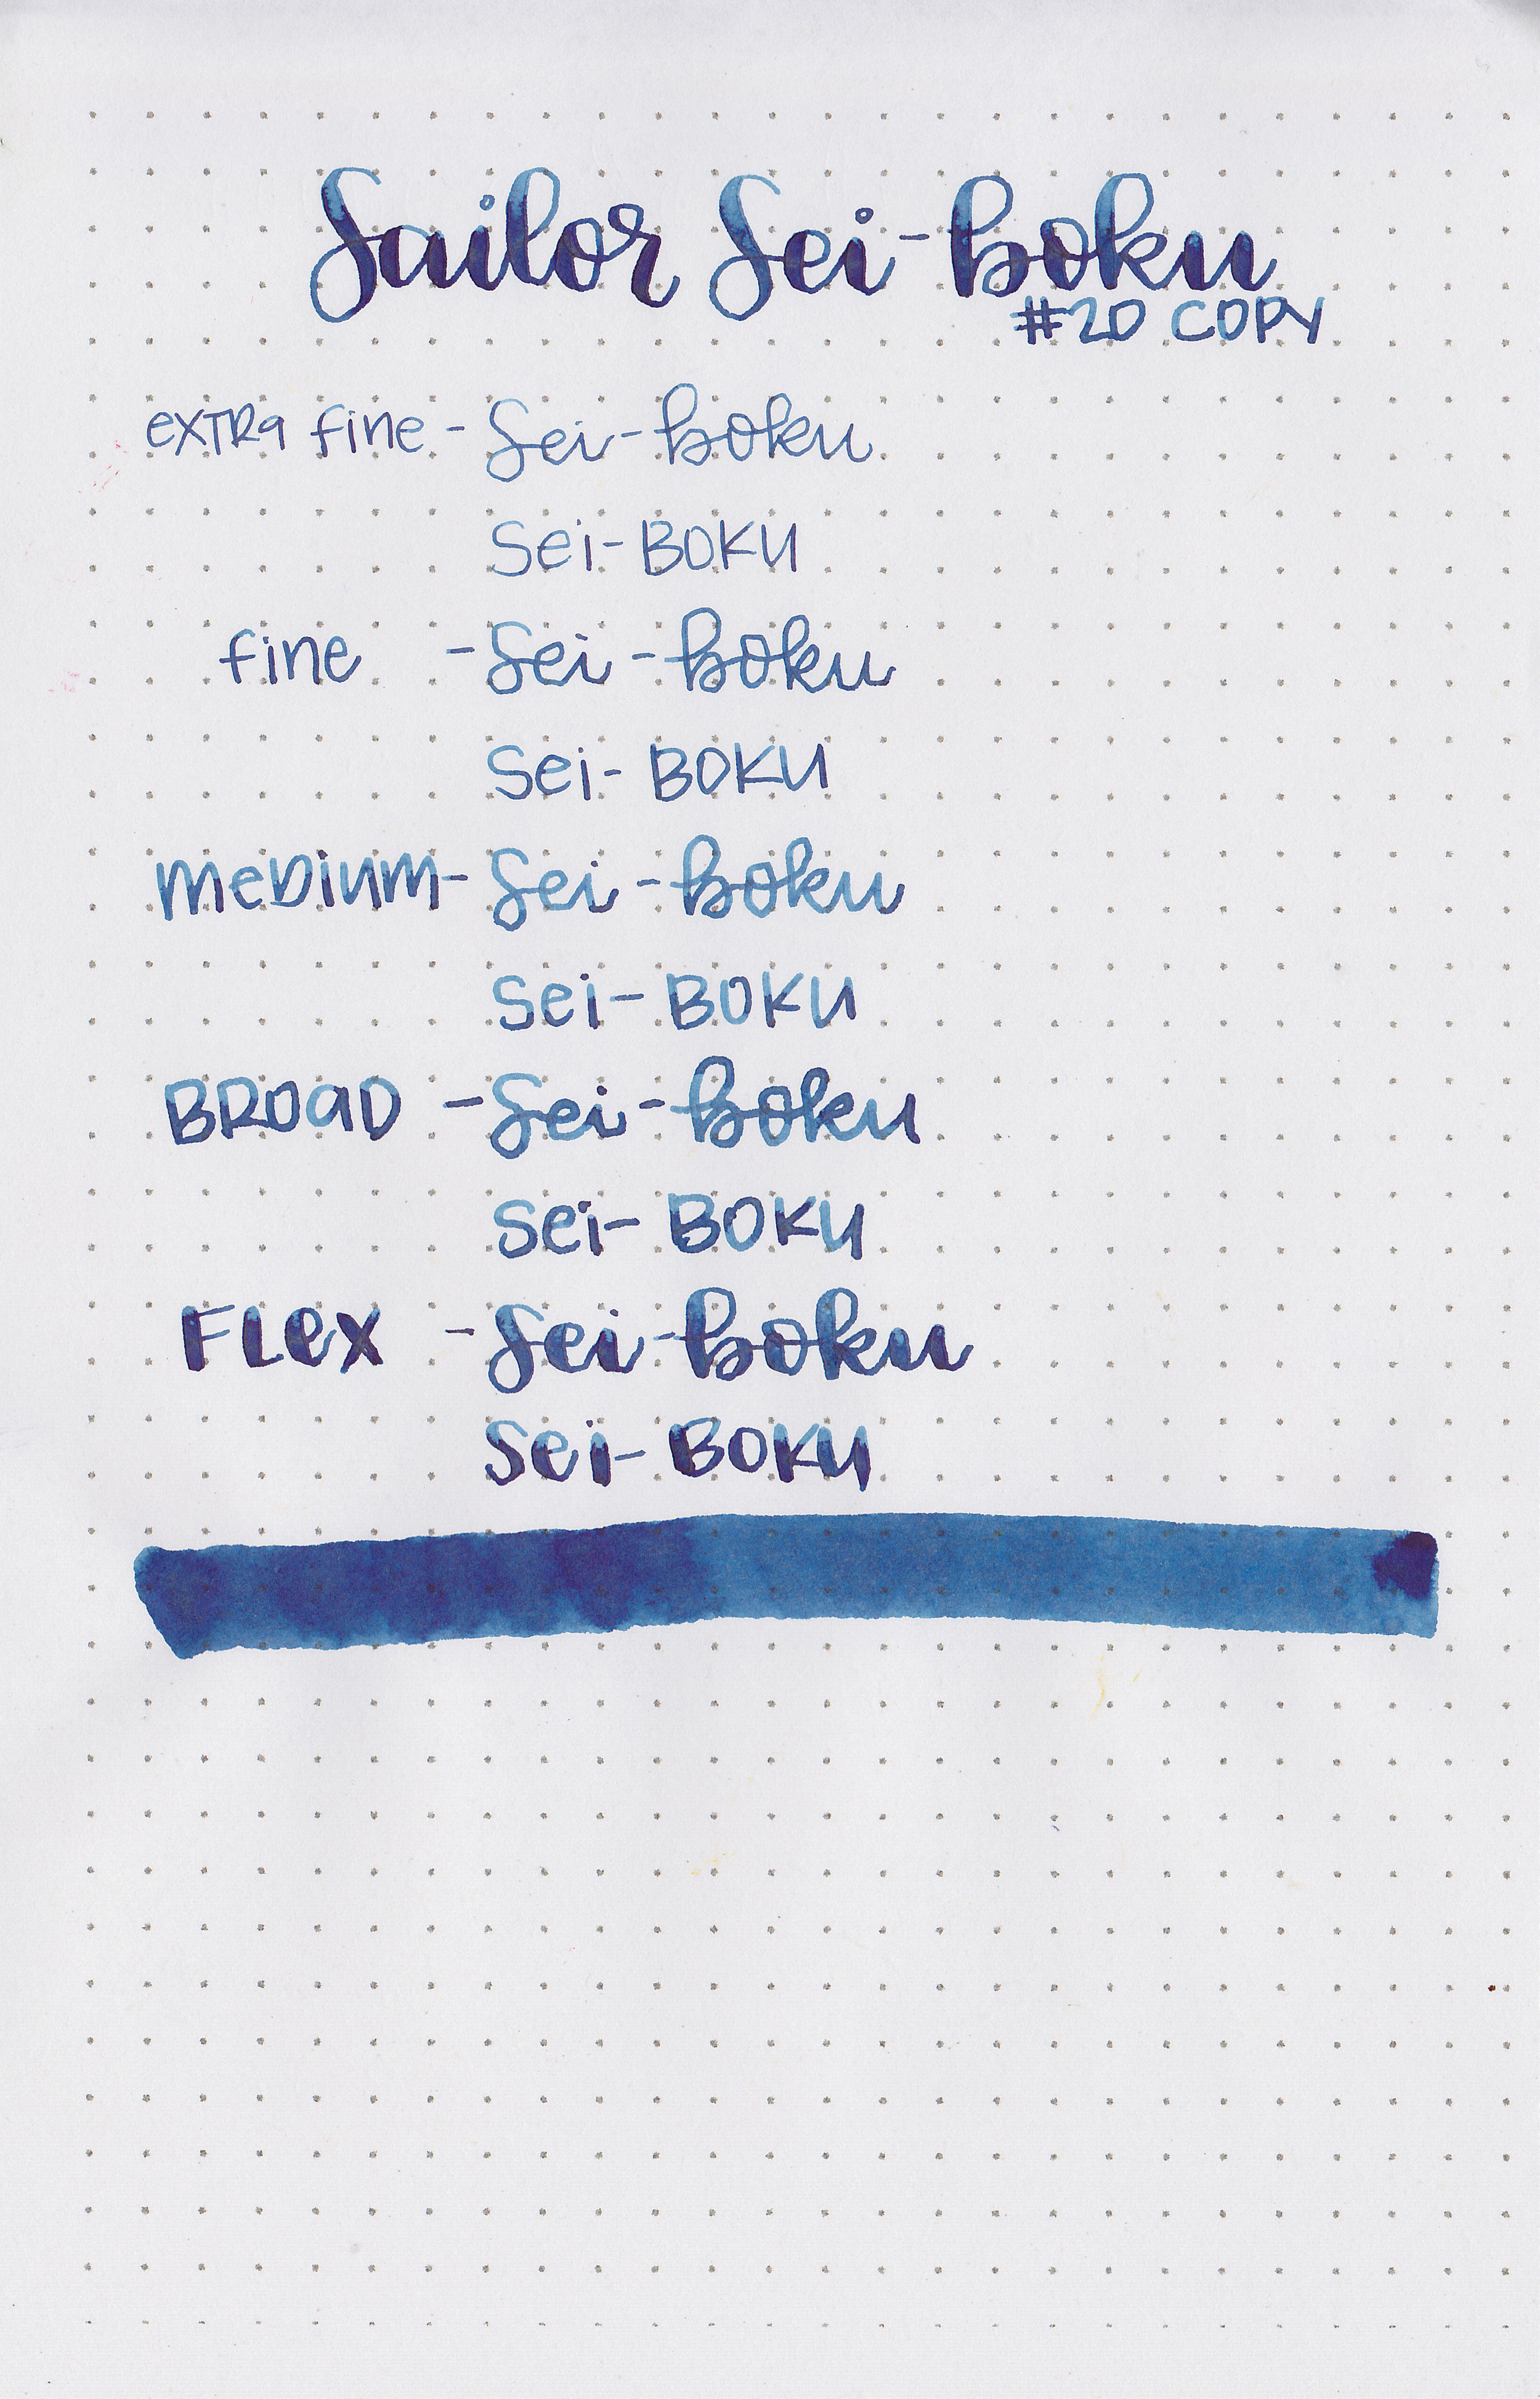 Sailor Sei-boku
#20 COPY
extra fine - Sei-boku
Sei-BOKU
fine - Sei-boku
Sei-BOKU
Medium - Sei-boku
Sei-BOKU
BROAD - Sei-boku
Sei-BOKU
FLex - Sei-boku
Sei-BOKU